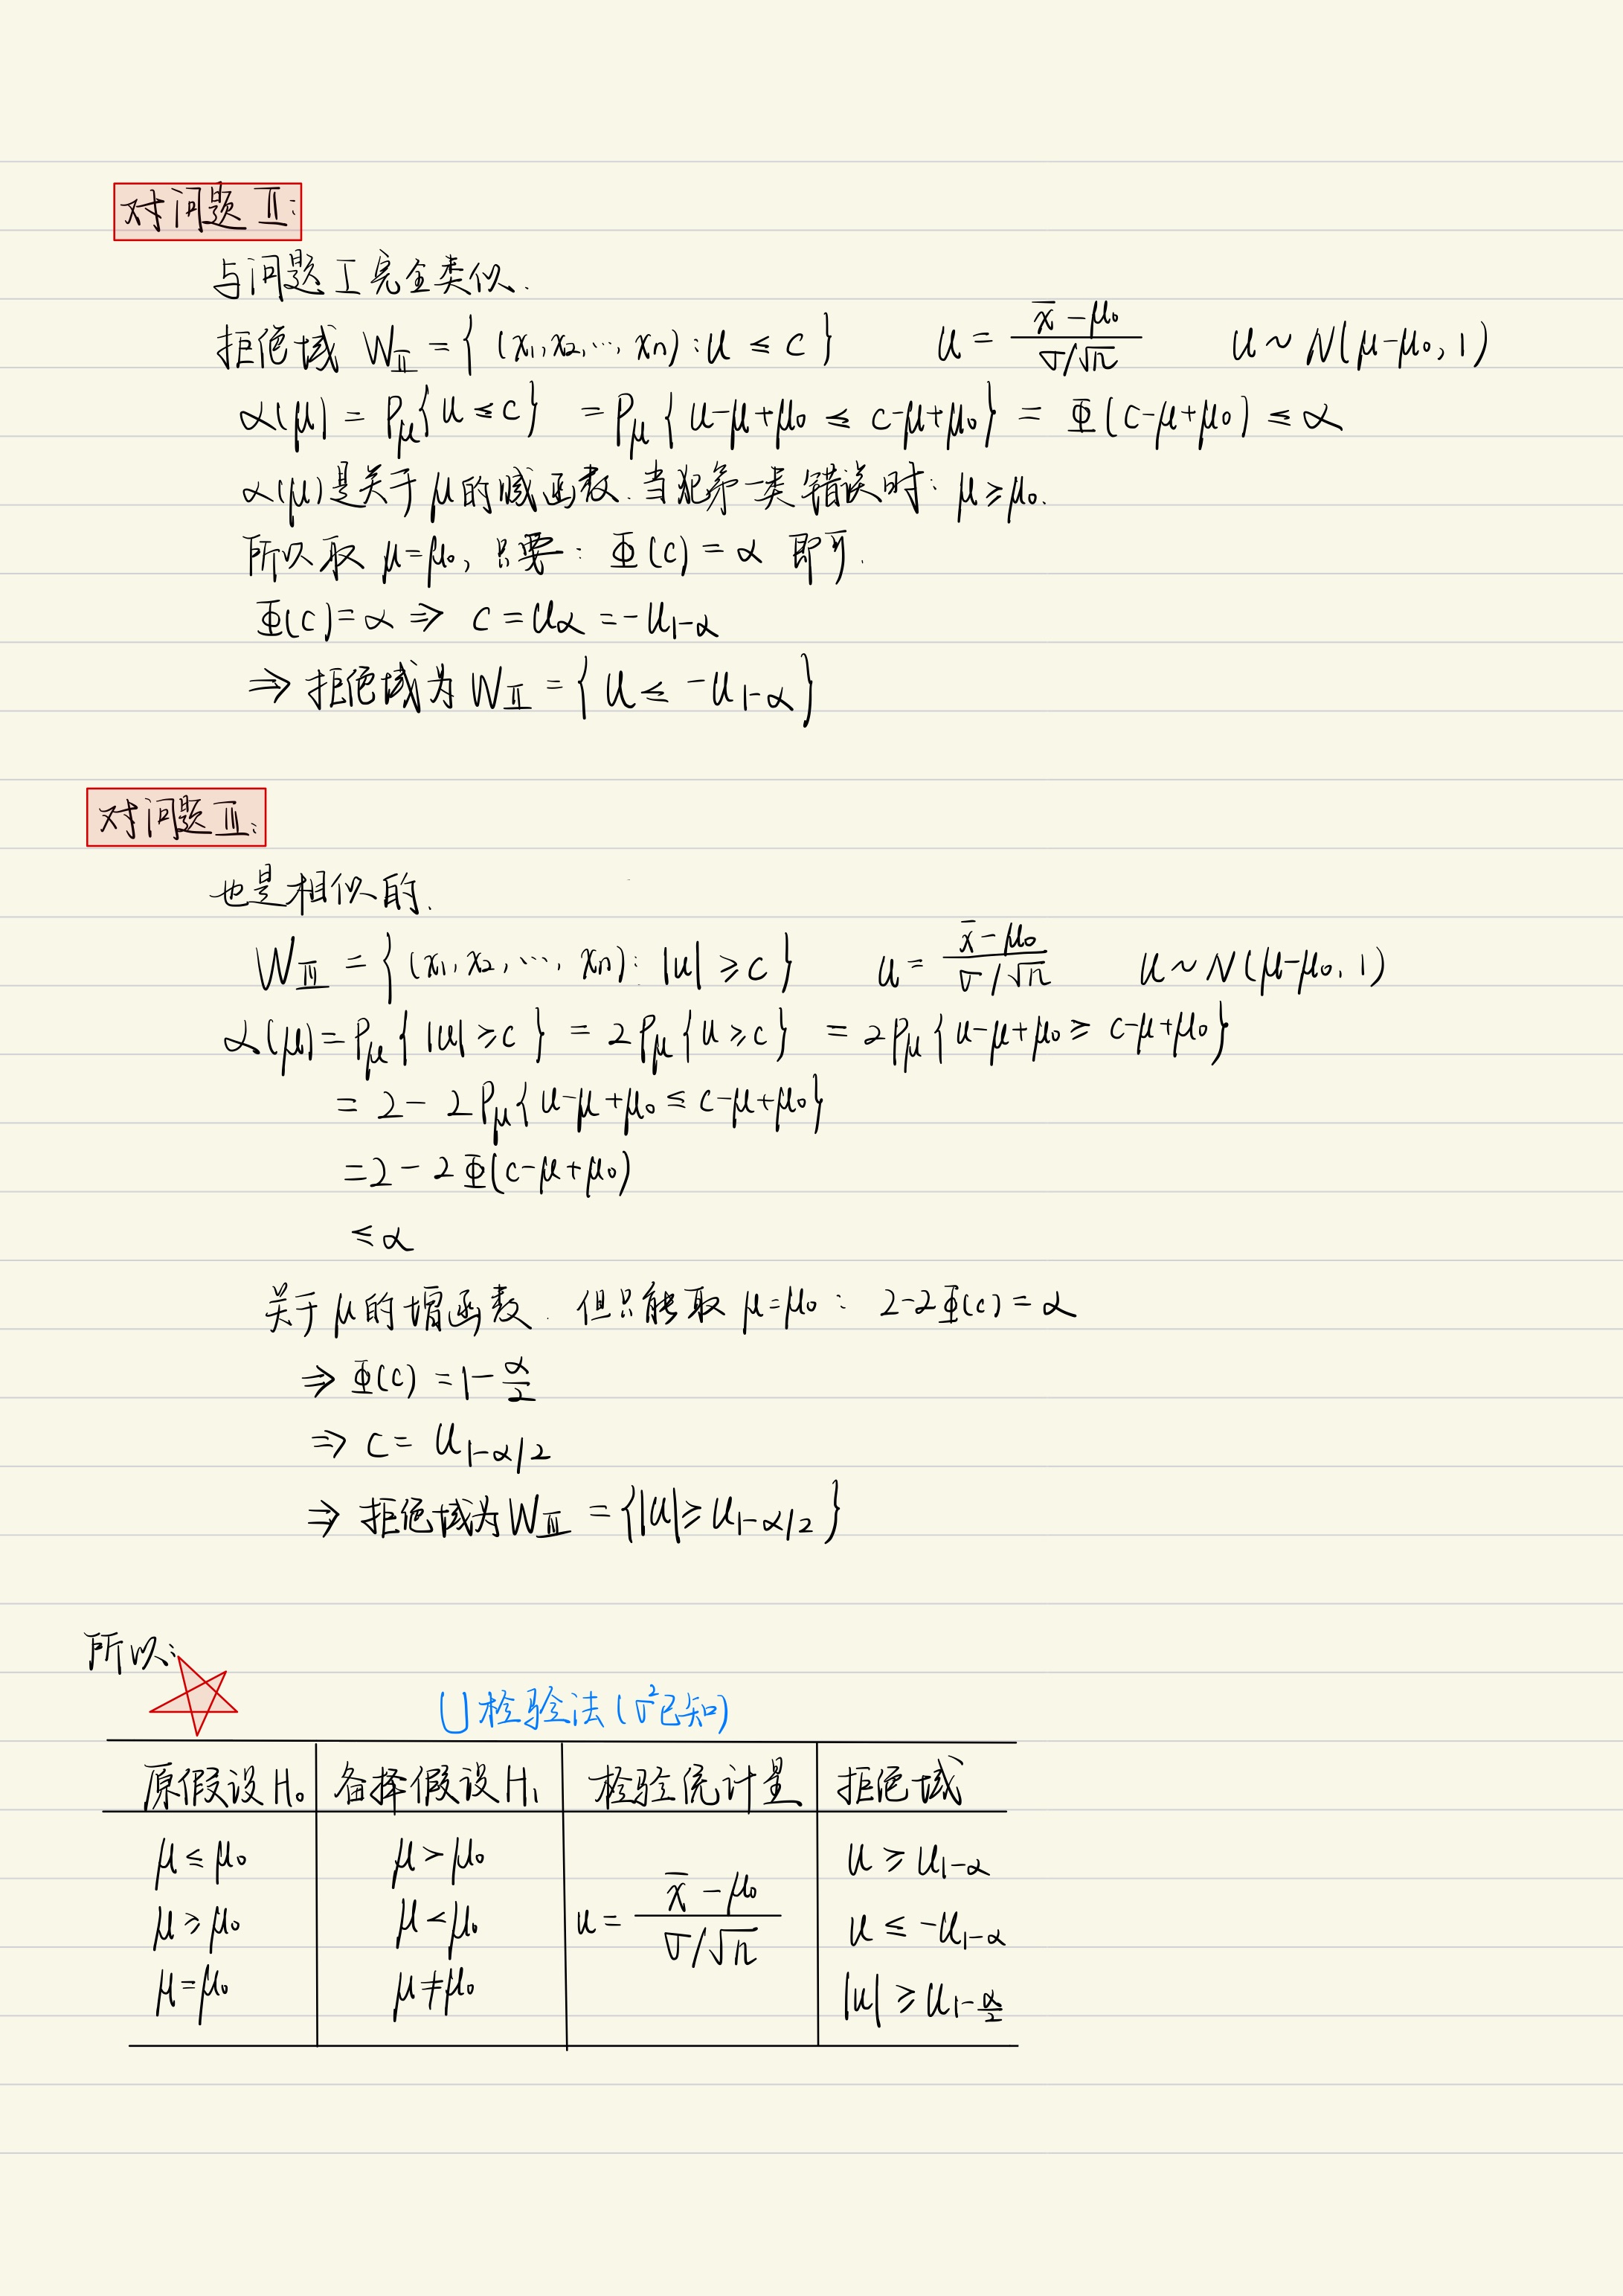 对问题 Ⅱ:
与问题Ⅰ完全类似.
拒绝域 W_Ⅱ = { (x₁,x₂,⋯, xn) : u ≤ c } u = (x̄ - μ₀)/(σ/√n) u ~ N(μ-μ₀, 1)
α(μ) = P_μ{u ≤ c} = P_μ { u-μ+μ₀ ≤ c-μ+μ₀} = Φ(c-μ+μ₀) ≤ α
α(μ)是关于 μ 的减函数. 当犯第一类错误时: μ ≥ μ₀.
所以取 μ=μ₀, 只要: Φ(c) = α 即可.
Φ(c)=α ⇒ c = u_α = -u_{1-α}
⇒ 拒绝域为 W_Ⅱ = { u ≤ -u_{1-α} }
对问题Ⅲ:
也是相似的.
W_Ⅲ = { (x₁, x₂, ⋯, xn): |u| ≥ c } u = (x̄ - μ₀)/(σ/√n) u ~ N(μ-μ₀, 1)
α(μ) = P_μ{ |u| ≥ c } = 2P_μ{u ≥ c} = 2P_μ{u-μ+μ₀ ≥ c-μ+μ₀}
= 2 - 2P_μ{u-μ+μ₀ ≤ c-μ+μ₀}
= 2 - 2Φ(c-μ+μ₀)
≤ α
关于 μ 的增函数. 但只能取 μ=μ₀ : 2-2Φ(c) = α
⇒ Φ(c) = 1-α/2
⇒ c = u_{1-α/2}
⇒ 拒绝域为W_Ⅲ = {|u| ≥ u_{1-α/2} }
所以:
U检验法(σ²已知)
原假设H₀ 备择假设H₁ 检验统计量 拒绝域
μ ≤ μ₀ μ > μ₀ u ≥ u_{1-α}
μ ≥ μ₀ μ < μ₀ u = (x̄ - μ₀)/(σ/√n) u ≤ -u_{1-α}
μ = μ₀ μ ≠ μ₀ |u| ≥ u_{1-α/2}